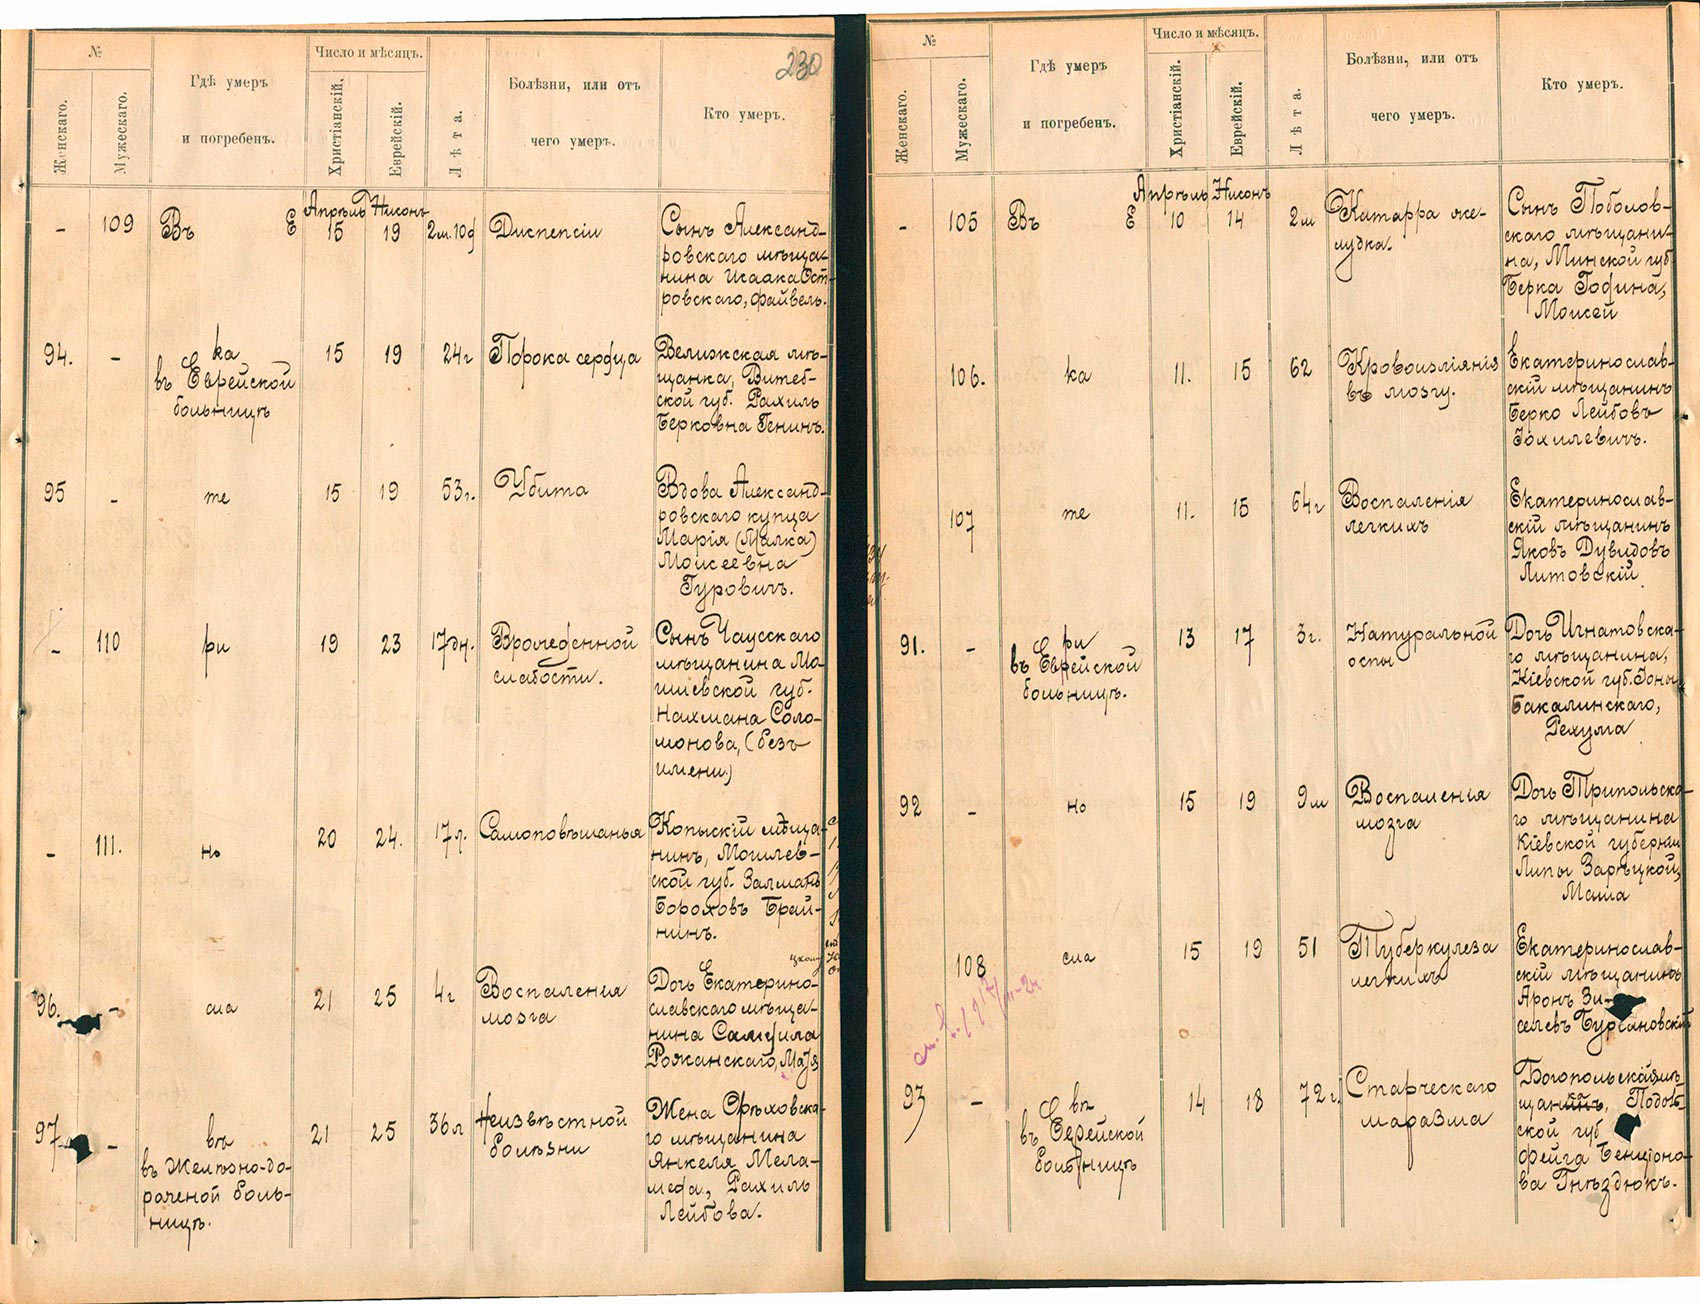 №
Женскаго.
Мужескаго.
Гдѣ умеръ
и погребенъ.
Число и мѣсяцъ.
Христіанскій.
Еврейскій.
Лѣта.
Болѣзни, или отъ
чего умеръ.
Кто умеръ.
230
Апрѣль Нисонъ
- 109 Въ Е 15 19 2м.10д Диспепсіи
Сынъ Александ-
ровскаго мѣща-
нина Исаака Ост-
ровскаго, Файвель.
94. - ка 15 19 24г Порока сердца
въ Еврейской
больницѣ
Велижская мѣ-
щанка, Витеб-
ской губ. Рахиль
Берковна Генинъ.
95 - те 15 19 53г. Убита
Вдова Александ-
ровскаго купца
Марія (Малка)
Моисеевна
Гуровичъ.
- 110 ри 19 23 17дн. Врожденной
слабости.
Сынъ Чаусскаго
мѣщанина Мо-
гилевской губ.
Нахмана Соло-
монова, (безъ
имени)
- 111. но 20 24. 17л. Самоповѣшанья
Копыскій мѣща-
нинъ, Могилев-
ской губ. Залманъ
Бороховъ Брай-
нинъ.
96. - сла 21 25 4г Воспаления
мозга
Дочь Екатерино-
славскаго мѣща-
нина Самуила
Рожанскаго,
97 - вѣ 21 25 36л Неизвѣстной
болѣзни
въ Желѣзно-до-
рожной боль-
ницѣ.
Жена Орѣховска-
го мѣщанина
Янкеля Мела-
меда, Рахиль
Лейбова.
№
Женскаго.
Мужескаго.
Гдѣ умеръ
и погребенъ.
Число и мѣсяцъ.
Христіанскій.
Еврейскій.
Лѣта.
Болѣзни, или отъ
чего умеръ.
Кто умеръ.
Апрѣль Нисонъ
- 105 Въ Е 10 14 2м Катарра же-
лудка.
Сынъ Поболов-
скаго мѣщани-
на, Минской губ
Берка Гофина,
Моисей
106. ка 11. 15 62 Кровоизліянія
въ мозгу.
Екатеринослав-
скій мѣщанинъ
Берко Лейбовъ
Іохилевичъ.
107 те 11. 15 64г Воспаленія
легкихъ
Екатеринослав-
скій мѣщанинъ
Яковъ Дувидовъ
Литовскій
91. - ри 13 17 3г. Натуральной
оспы
въ Еврейской
больницѣ.
Дочь Игнатовска-
го мѣщанина,
Кіевской губ. Іоны
Бакалинскаго,
Рехума
92 - но 15 19 9м Воспаления
мозга
Дочь Трипольска-
го мѣщанина
Кіевской губерніи
Липы Зарѣцкой,
Маша
108 сла 15 19 51 Туберкулеза
легкихъ
Екатеринослав-
скій мѣщанинъ
Аронъ Зи-
селевъ Бурсановскій
93 - вѣ 14 18 72г Старческаго
маразма
въ Еврейской
больницѣ
Богопольская мѣ-
щан Подоль
ской губ
Фейга Бенціоно-
ва Гнѣздюкъ.